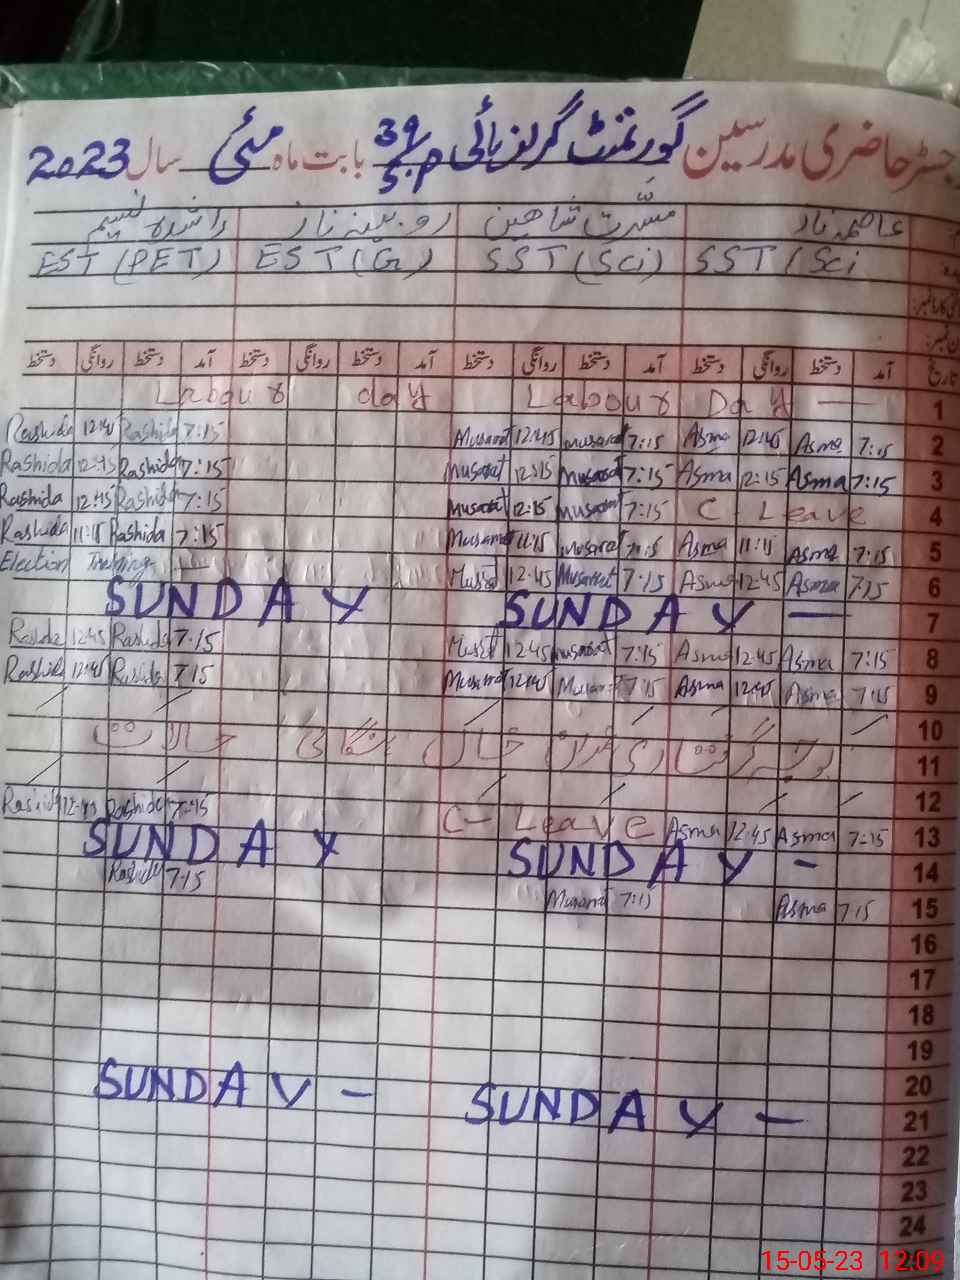 رجسٹر حاضری مدرسین گورنمنٹ گرلز ہائی 39/S.P بابت ماہ مئی سال 2023
عاصمہ ناز مسرت شاہین روبینہ ناز راشدہ نسیم
SST/Sci SST (Sci) EST (G) EST (PET)
تاریخ آمد دستخط روانگی دستخط آمد دستخط روانگی دستخط آمد دستخط روانگی دستخط آمد دستخط روانگی دستخط
Labour day Labour Day — 1
Rashida 12:45 Rashida 7:15 Musarat 12:45 Musarat 7:15 Asma 12:45 Asma 7:15 2
Rashida 12:45 Rashida 7:15 Musarat 12:15 Musarat 7:15 Asma 12:15 Asma 7:15 3
Rashida 12:45 Rashida 7:15 Musarat 12:15 Musarat 7:15 C- Leave 4
Rashida 11:15 Rashida 7:15 Musarat 11:15 Musarat 7:15 Asma 11:15 Asma 7:15 5
Election Training Musarat 12:45 Musarat 7:15 Asma 12:45 Asma 7:15 6
SUNDAY SUNDAY — 7
Rashida 12:45 Rashida 7:15 Musarat 12:45 Musarat 7:15 Asma 12:45 Asma 7:15 8
Rashida 12:45 Rashida 7:15 Musarat 12:45 Musarat 7:15 Asma 12:45 Asma 7:15 9
10
بوجہ گرفتاری عمران خان ہنگامی حالات 11
12
Rashida 12:45 Rashida 7:15 C- Leave Asma 12:45 Asma 7:15 13
SUNDAY SUNDAY - 14
Rashida 7:15 Musarat 7:15 Asma 7:15 15
16
17
18
19
20
SUNDAY - SUNDAY - 21
22
23
24
15-05-23 12:09